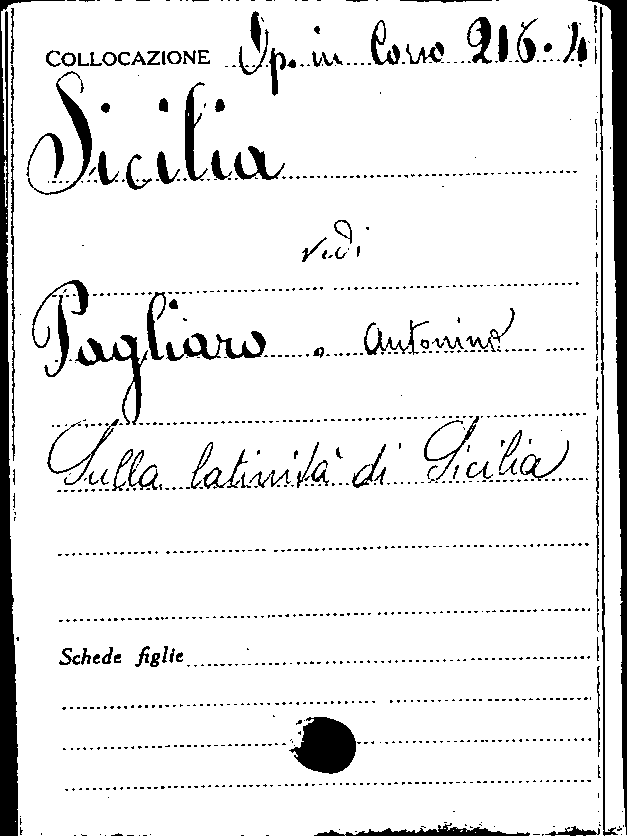 COLLOCAZIONE Op. in Corso 216.4
Sicilia
vedi
Pagliaro. Antonino
Sulla latinità di Sicilia
Schede figlie